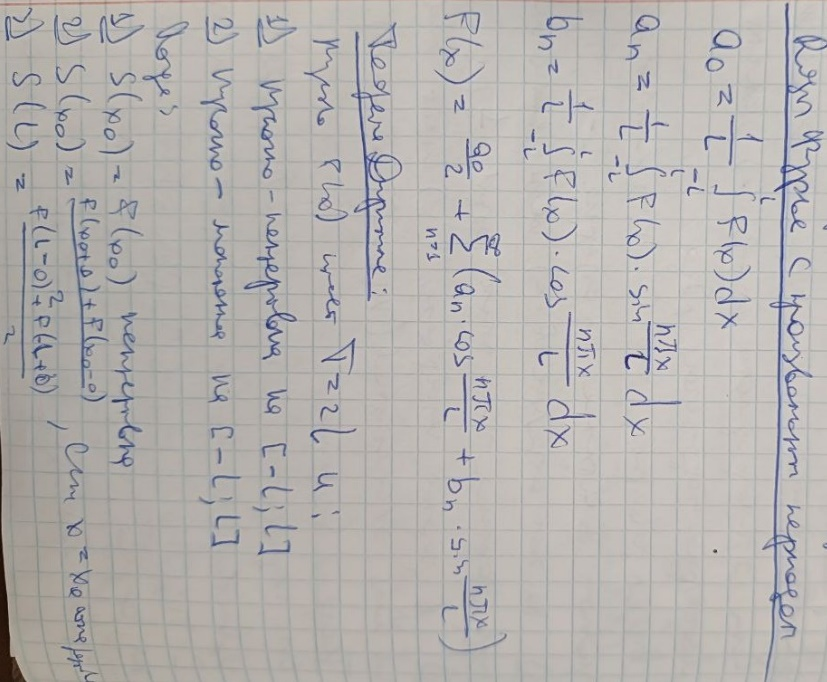 Ряд Фурье с произвольным периодом
a₀ = 1/L ∫_{-L}^{L} F(x)dx
aₙ = 1/L ∫_{-L}^{L} F(x)·sin nπx/L dx
bₙ = 1/L ∫_{-L}^{L} F(x)·cos nπx/L dx
F(x) = a₀/2 + Σ_{n=1}^{∞} (aₙ·cos nπx/L + bₙ·sin nπx/L)
Теорема Дирихле:
Пусть F(x) имеет T=2L и:
1) кусочно-непрерывна на [-L; L]
2) кусочно-монотонна на [-L; L]
Тогда:
1) S(x₀) = F(x₀) непрерывна
2) S(x₀) = F(x₀+0)+F(x₀-0)/2, если x=x₀
3) S(L) = F(L-0)+F(L+0)/2